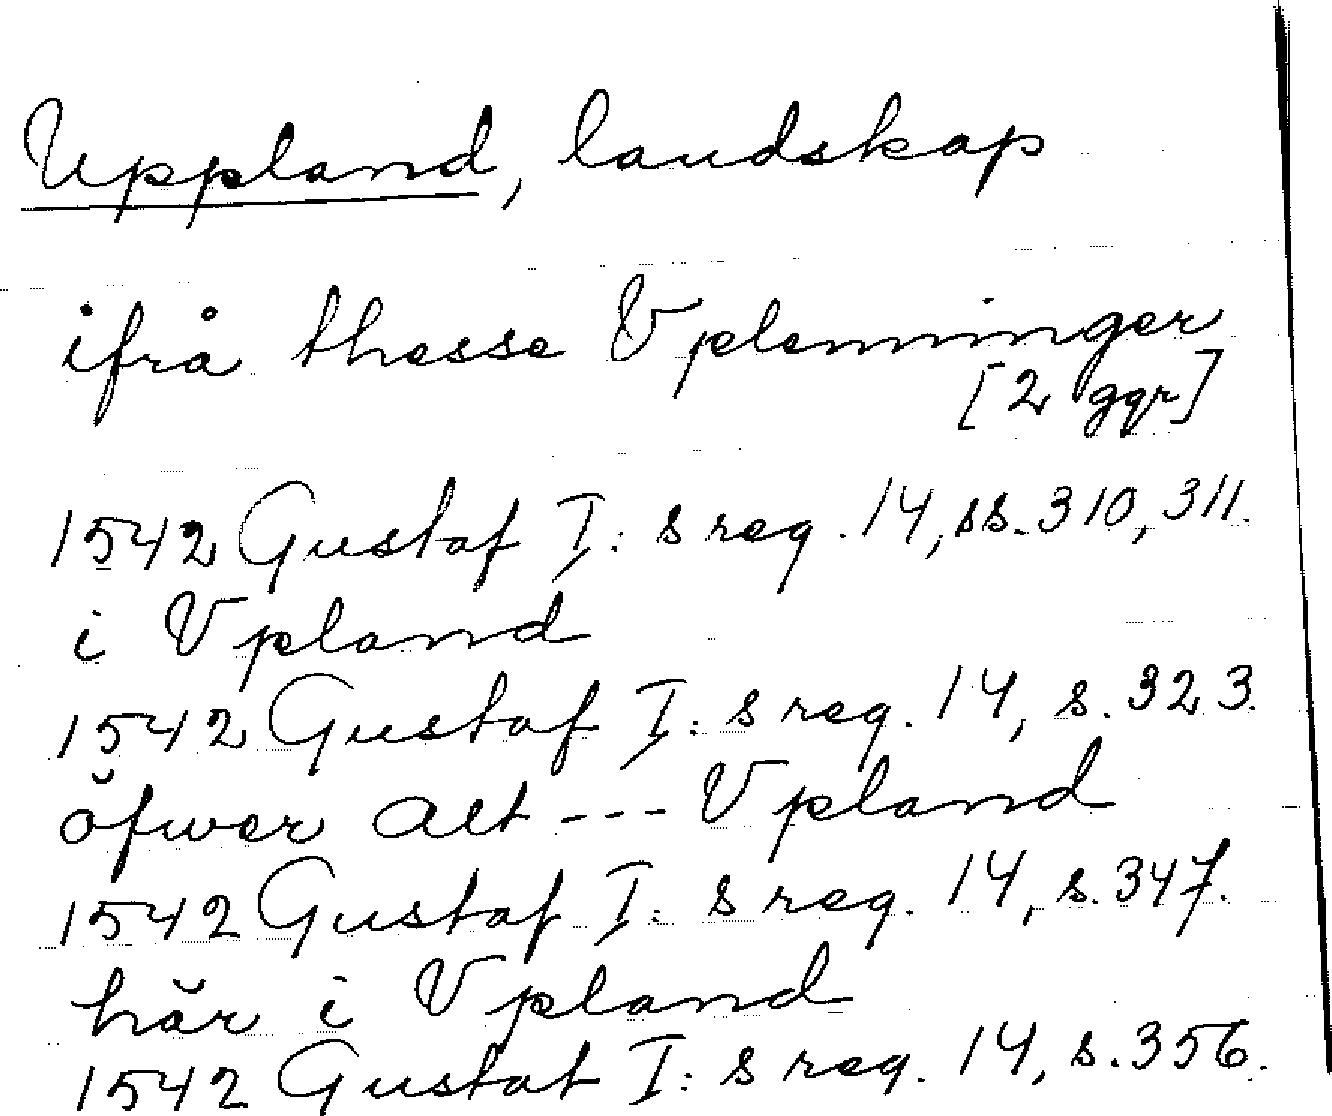 Uppland, landskap
ifrå thesse Vplenninger
[2 ggr]
1542 Gustaf I:s reg. 14, ss. 310, 311.
i Vpland
1542 Gustaf I:s reg. 14, s. 323.
öfwer alt --- Vpland
1542 Gustaf I:s reg. 14, s. 347.
här i Vpland
1542 Gustaf I:s reg. 14, s. 356.